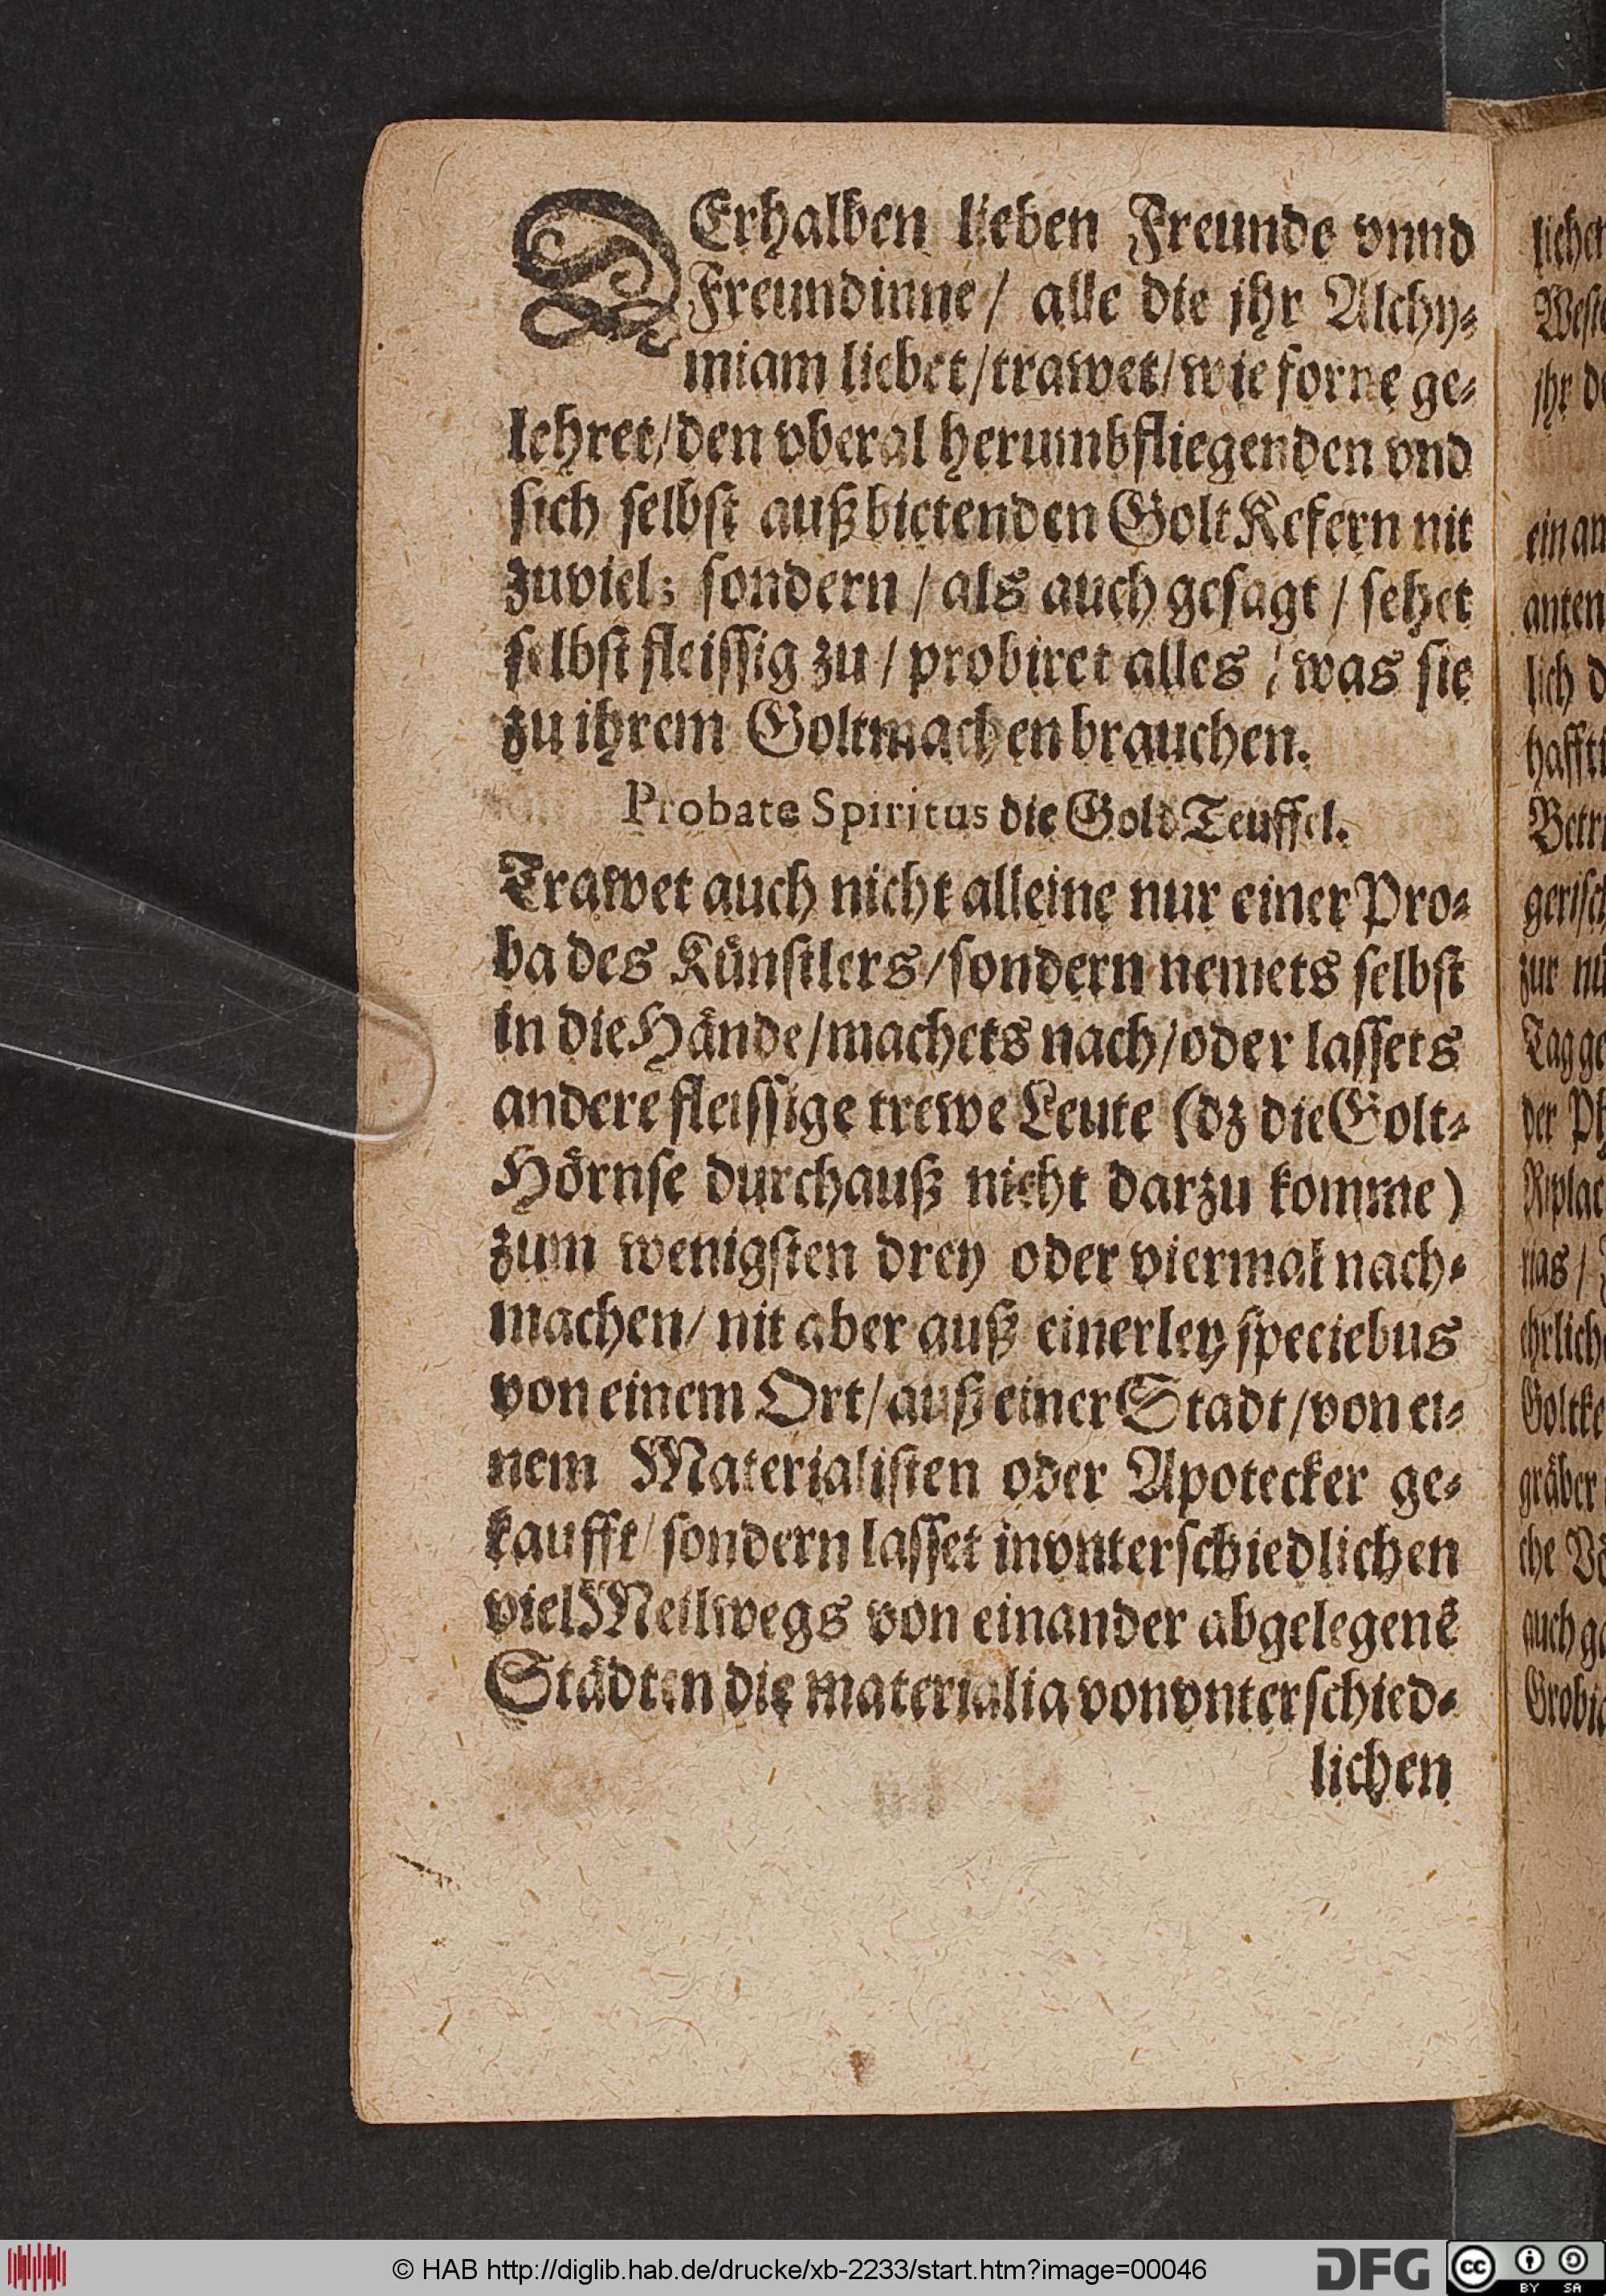 DErhalben lieben Freunde vnnd
Freundinne / alle die jhr Alchy-
miam liebet / trawet / wie forne ge-
lehret / den vberal herumbfliegenden vnd
sich selbst außbietenden Golt Kefern nit
zuviel; sondern / als auch gesagt / sehet
selbst fleissig zu / probiret alles / was sie
zu ihrem Goltmachen brauchen.
Probate Spiritus die Gold Teuffel.
Trawet auch nicht alleine nur einer Pro-
ba des Künstlers / sondern nemets selbst
in die Hände / machets nach / oder lassets
andere fleissige trewe Leute (dz die Golt-
Hörnse durchauß nicht darzu komme)
zum wenigsten drey oder viermal nach-
machen / nit aber auß einerley speciebus
von einem Ort / auß einer Stadt / von ei-
nem Materialisten oder Apotecker ge-
kaufft / sondern lasset in vnterschiedlichen
viel Meilwegs von einander abgelegenē
Städten die materialia von vnterschied-
lichen
lichen
jhr
ein an
anten
lich
Betr
gerisch
zur
Tag ge
der Ph
Riplae
nas /
ehrlich
Goltke
gräber
che
auch
Grobi
© HAB http://diglib.hab.de/drucke/xb-2233/start.htm?image=00046
DFG
cc
BY SA